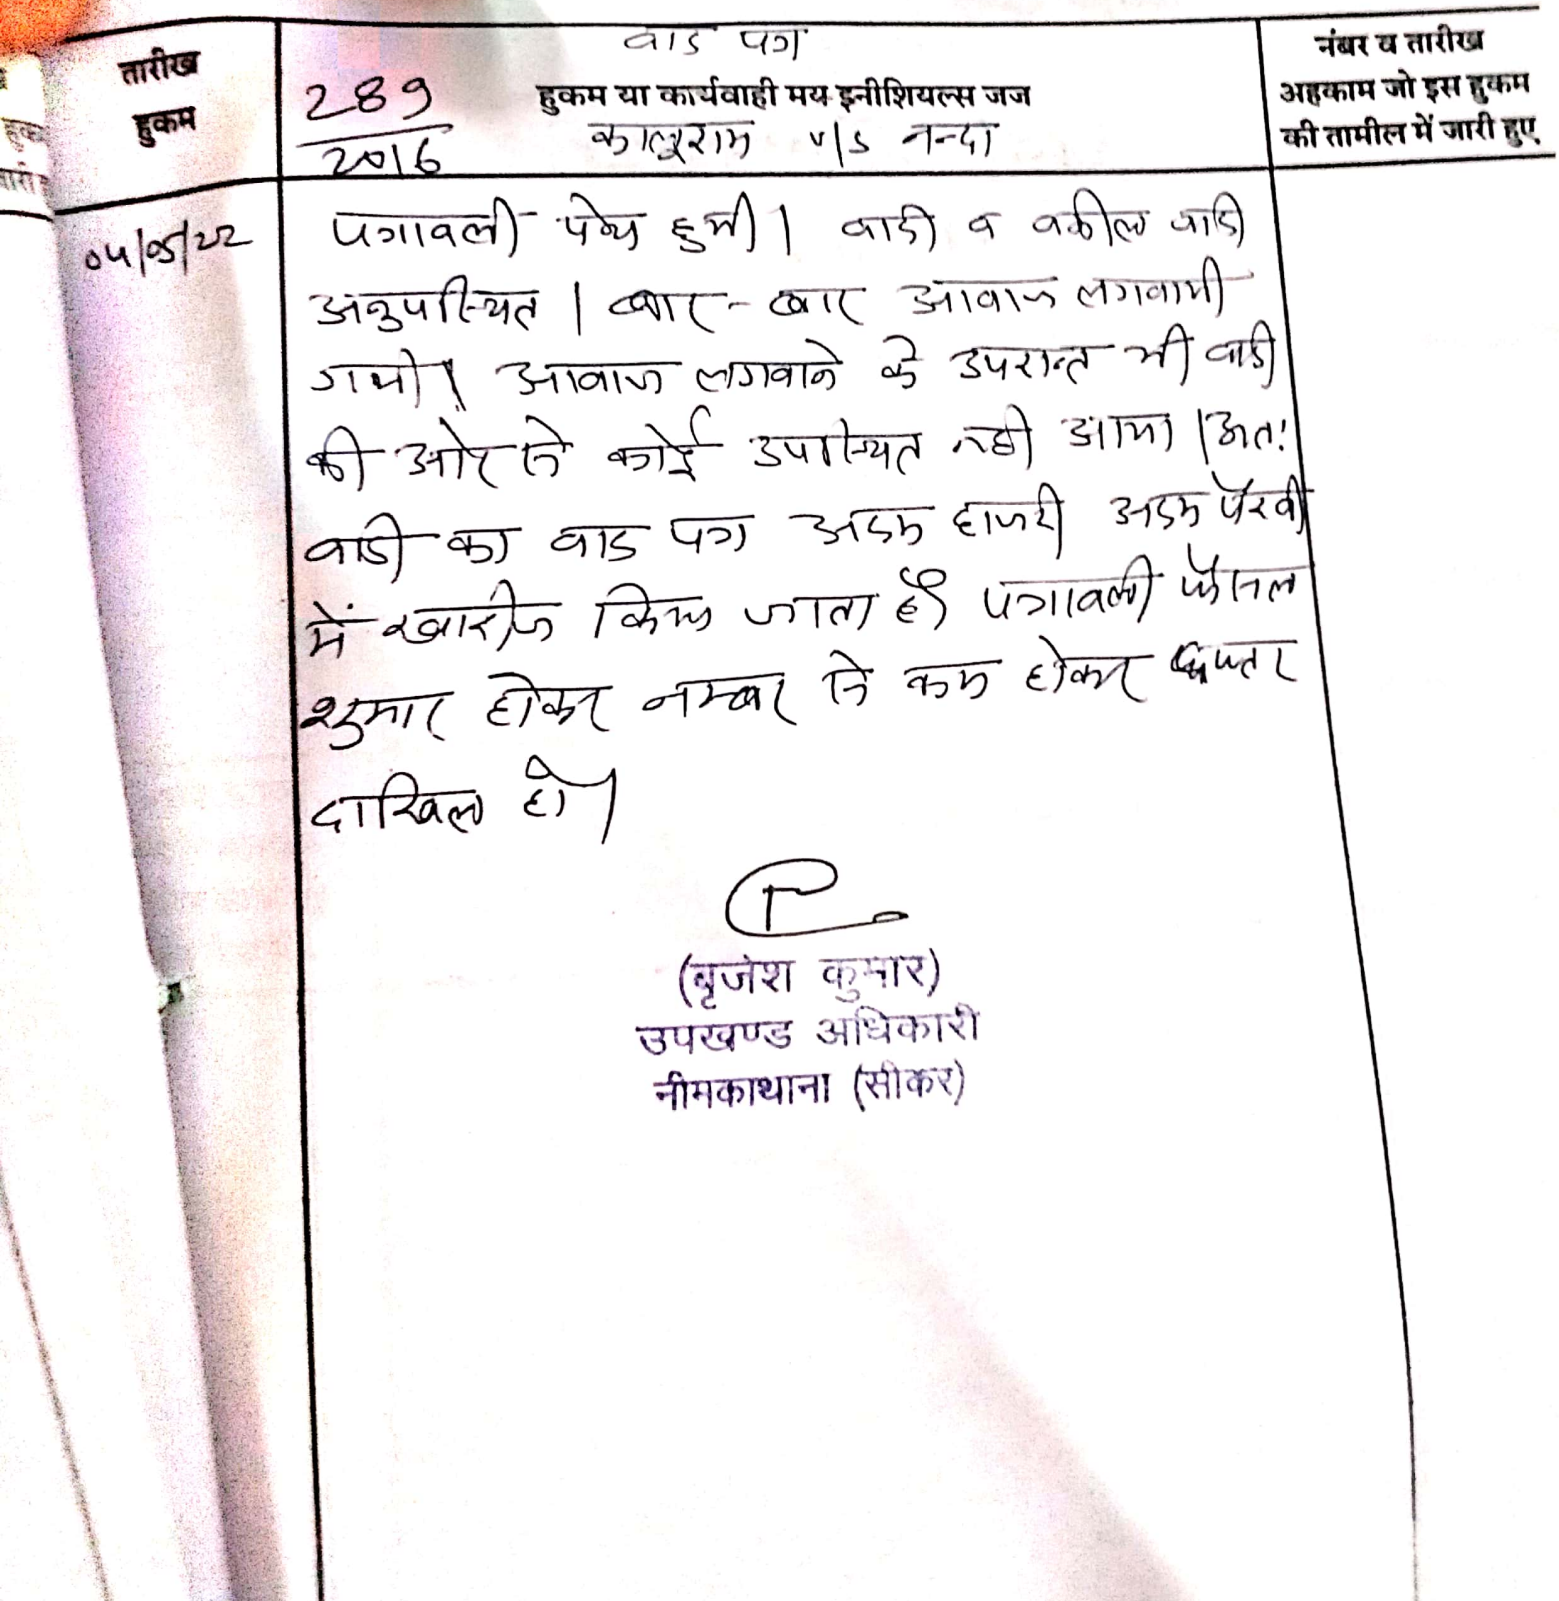 वाद पत्र
तारीख
हुकम
289
2016
हुकम या कार्यवाही मय इनीशियल्स जज
कालूराम v/s नन्दा
नंबर व तारीख
अहकाम जो इस हुकम
की तामील में जारी हुए
04/05/22
पत्रावली पेश हुयी। वादी व वकील वादी
अनुपस्थित। बार-बार आवाज लगवायी
गयी। आवाज लगवाने के उपरान्त भी वादी
की ओर से कोई उपस्थित नही आया। अतः
वादी का वाद पत्र अदम हाजरी अदम पैरवी
में खारीज किया जाता है। पत्रावली फैसल
शुमार होकर नम्बर से कम होकर दफ्तर
दाखिल हो।
(बृजेश कुमार)
उपखण्ड अधिकारी
नीमकाथाना (सीकर)